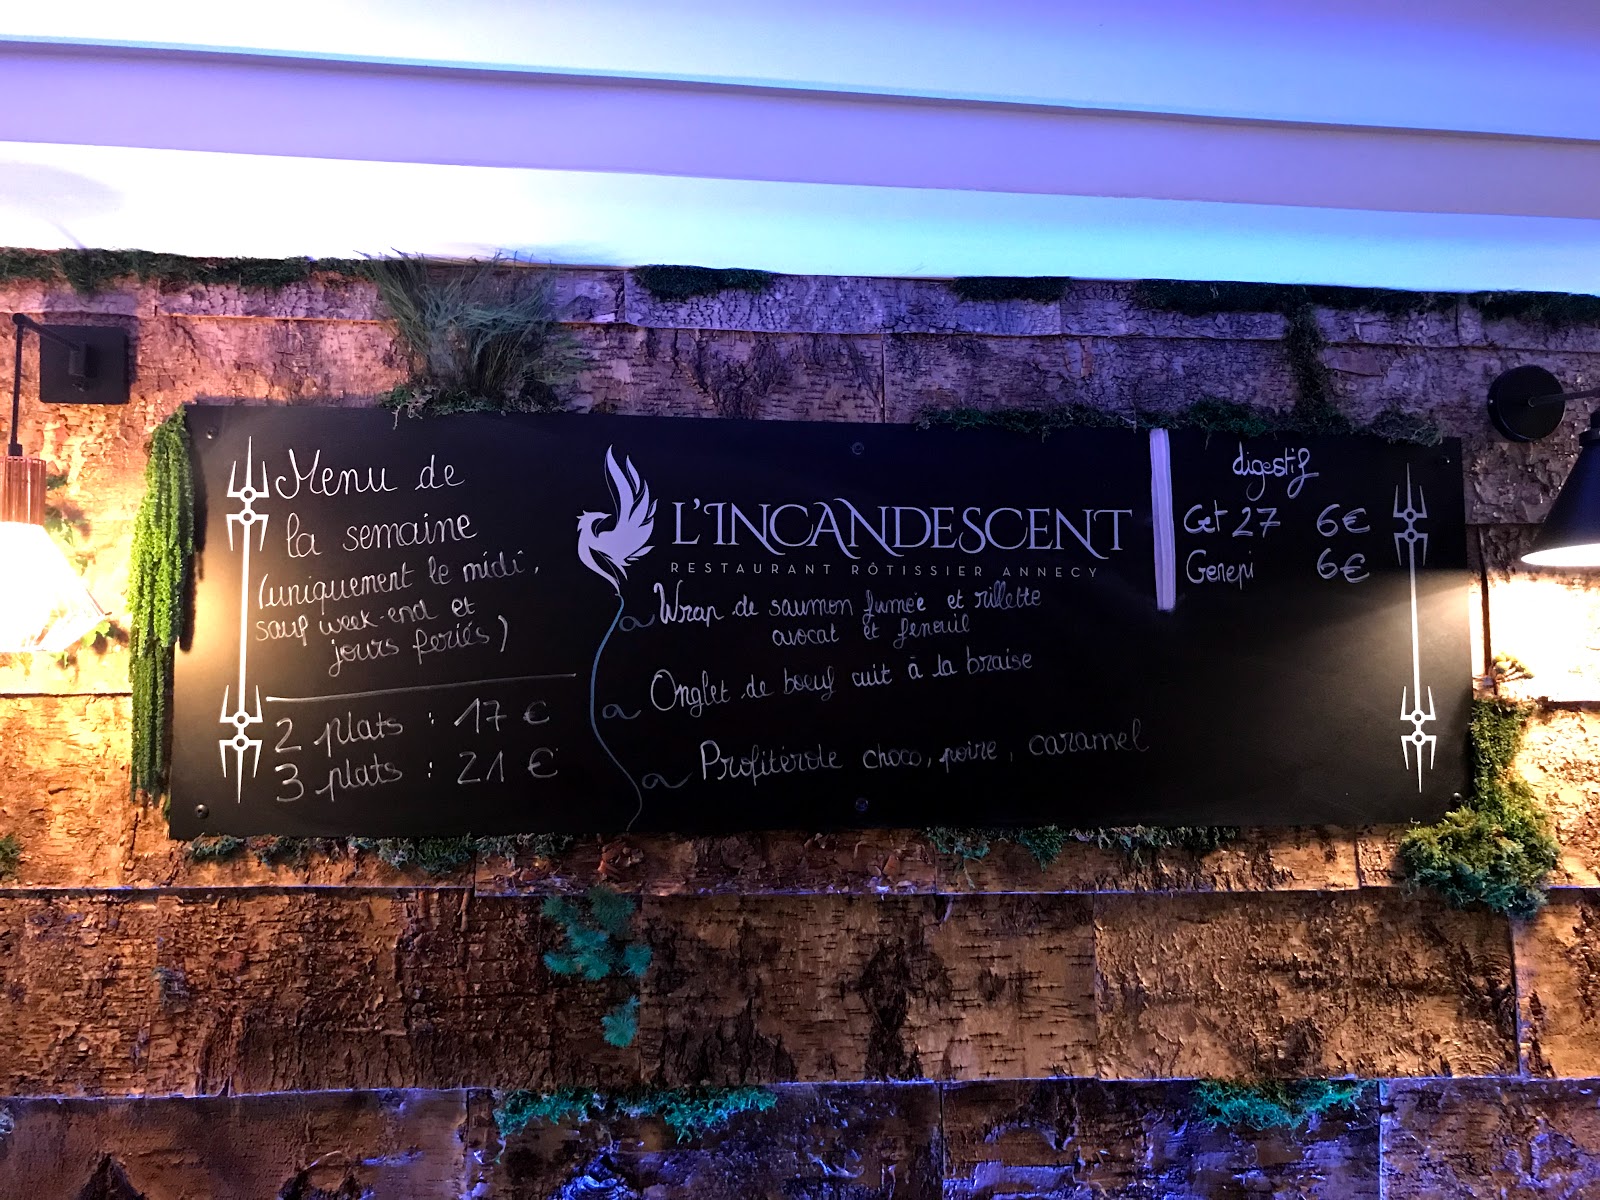 Menu de
la semaine
(uniquement le midi,
sauf week-end et
jours feriés)
2 plats : 17 €
3 plats : 21 €
L'INCANDESCENT
RESTAURANT RÔTISSIER ANNECY
Wrap de saumon fumée et rillette
avocat et fenouil
Onglet de boeuf cuit à la braise
Profiterole choco, poire, caramel
digestif
Get 27 6€
Genepi 6€